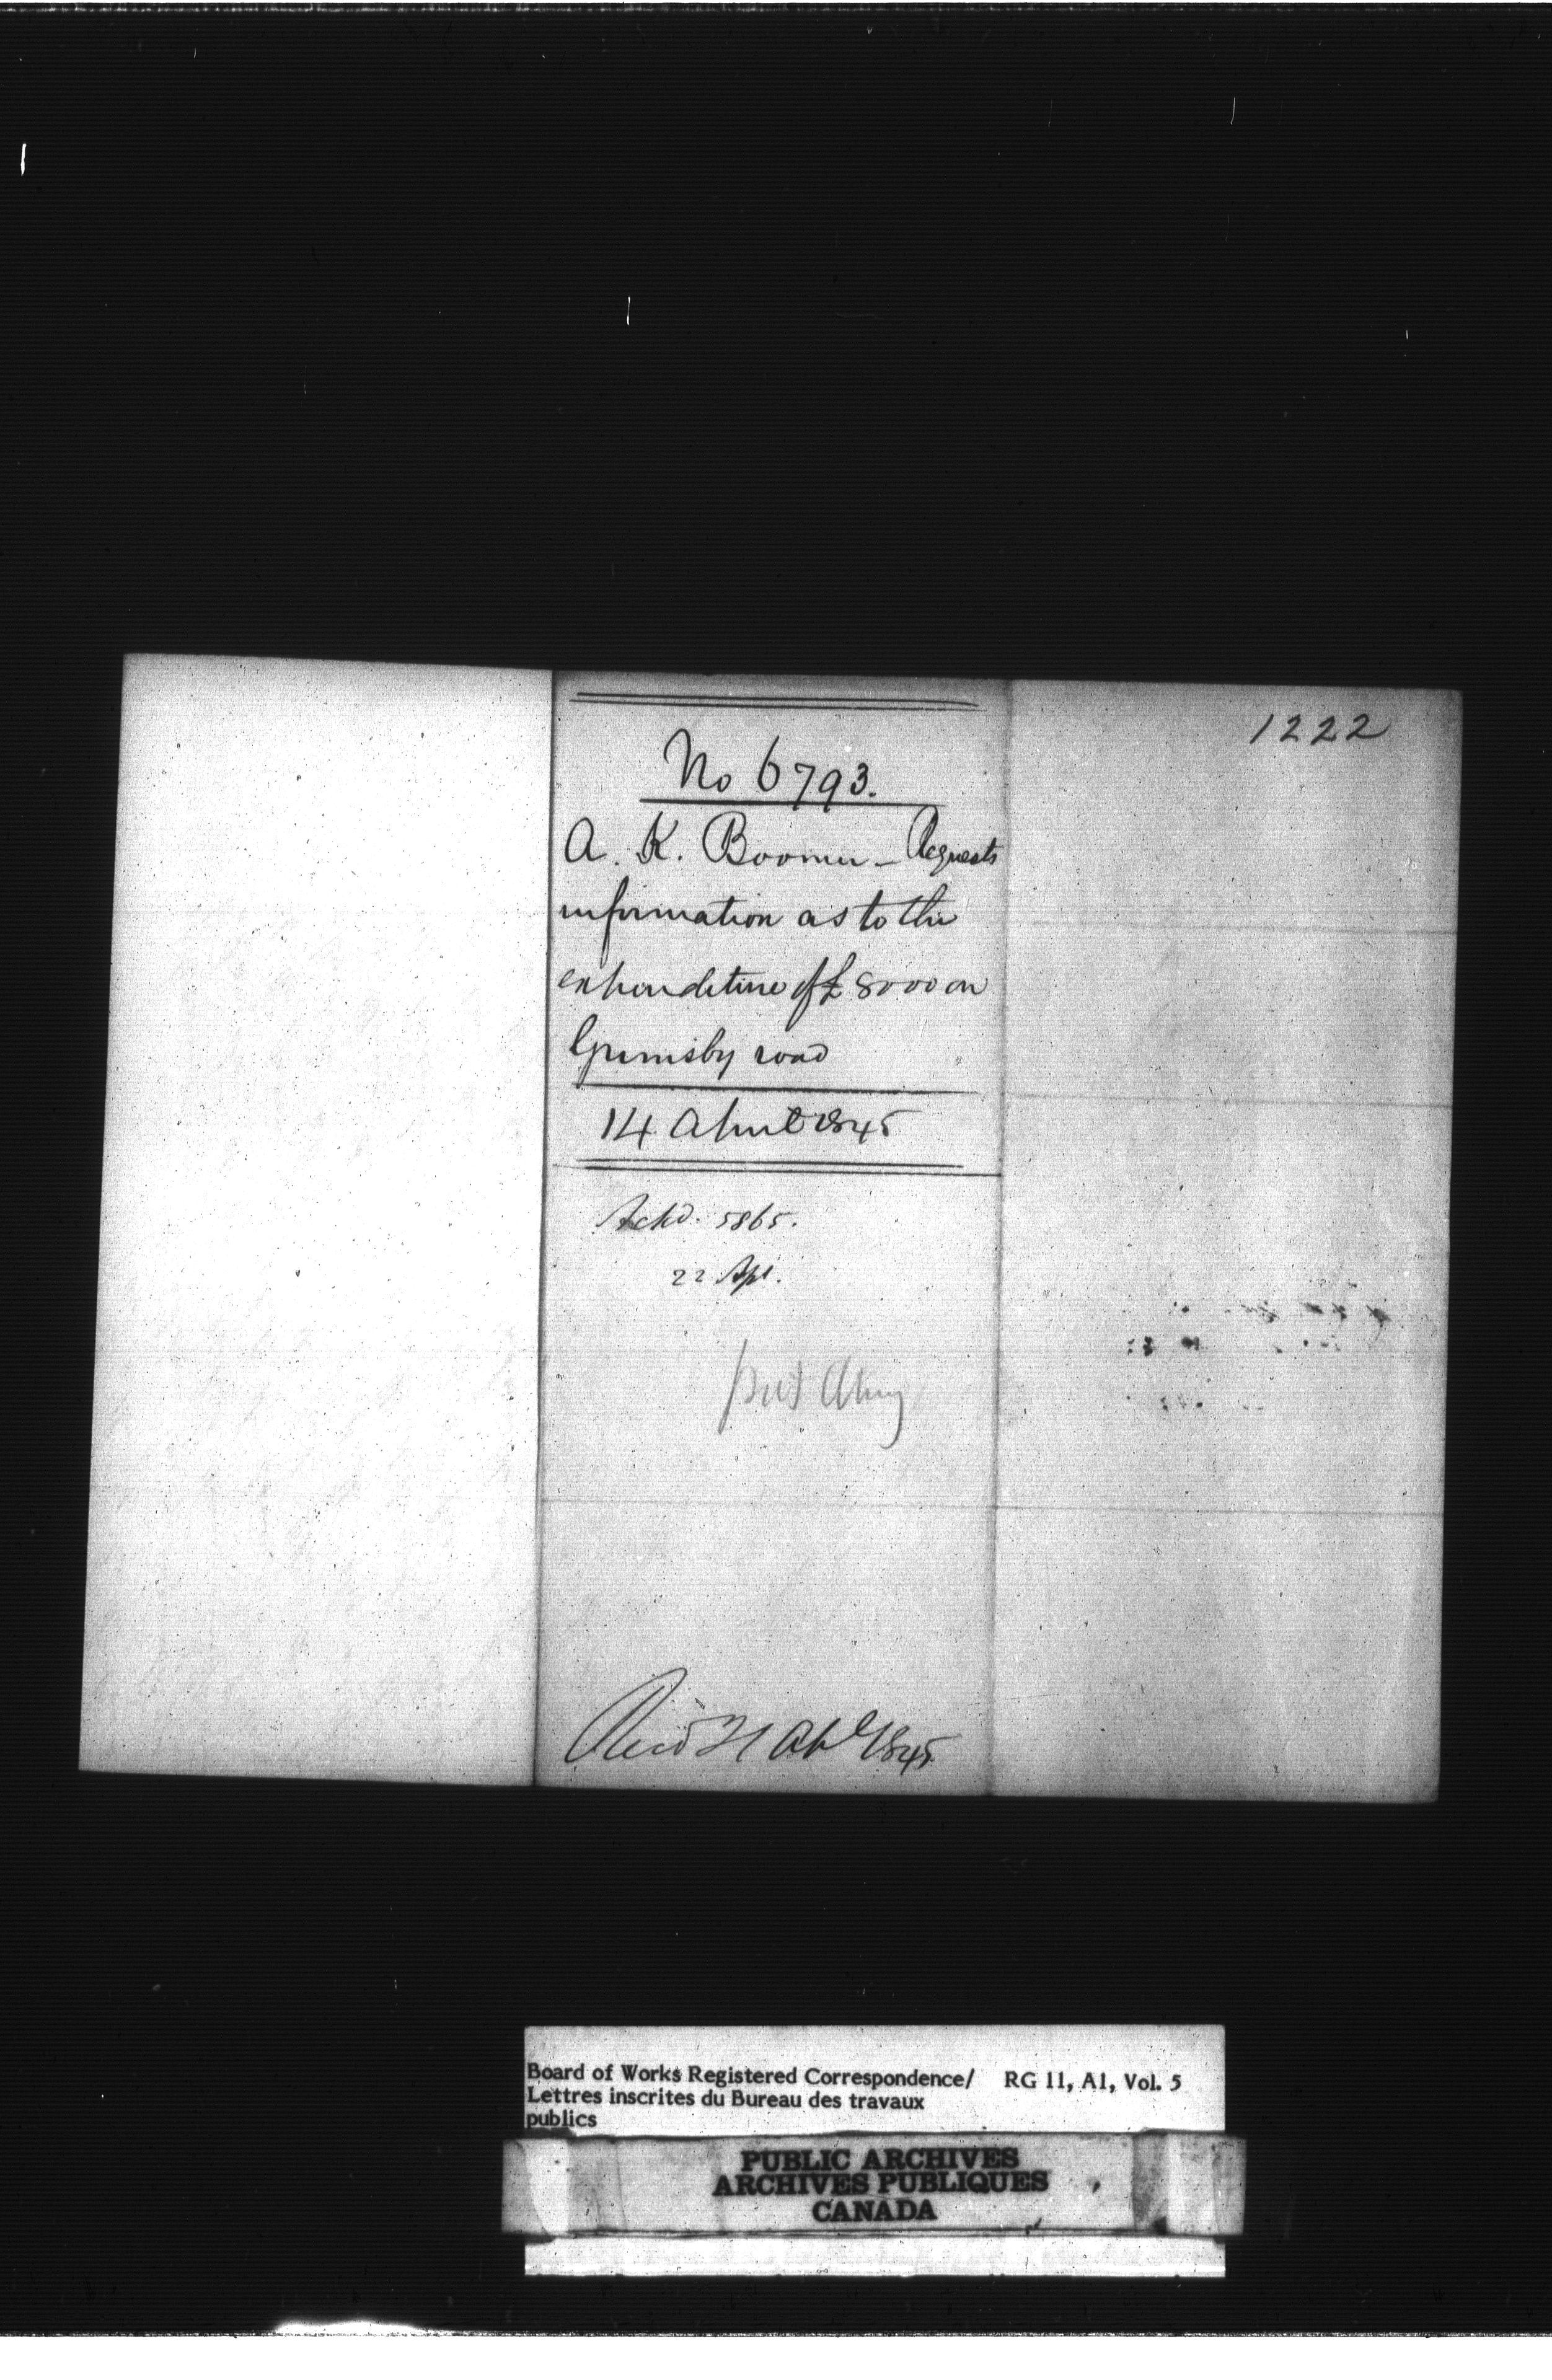 1222
No 6793.
A. K. Boomer - Requests
information as to the
expenditure of £8000 on
Grimsby road
14 April 1845
Ackd. 5865.
22 Apl.
put away
Recd 21 Apl 1845
Board of Works Registered Correspondence/ RG 11, A1, Vol. 5
Lettres inscrites du Bureau des travaux
publics
PUBLIC ARCHIVES
ARCHIVES PUBLIQUES
CANADA